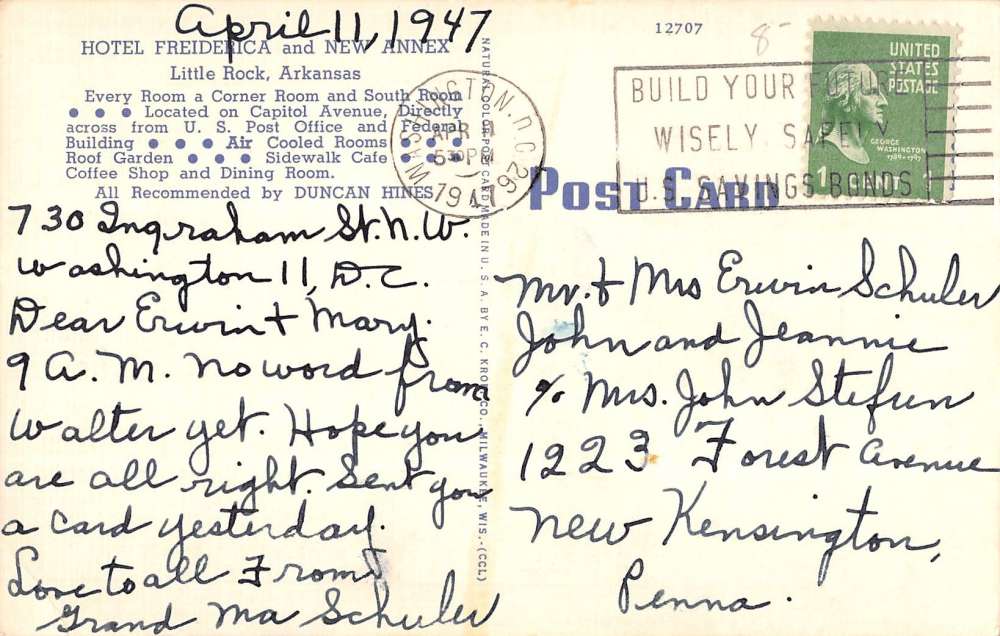 April 11, 1947
HOTEL FREIDERICA and NEW ANNEX
Little Rock, Arkansas
Every Room a Corner Room and South Room
● ● ● Located on Capitol Avenue, Directly
across from U. S. Post Office and Federal
Building ● ● ● ● Air Cooled Rooms ● ● ● ●
Roof Garden ● ● ● ● Sidewalk Cafe ● ● ● ●
Coffee Shop and Dining Room.
All Recommended by DUNCAN HINES
730 Ingraham St. N.W.
Washington 11, D.C.
Dear Erwin + Mary.
9 A. M. No word from
Walter yet. Hope you
are all right. Sent you
a card yesterday.
Love to all From
Grand Ma Schuler
NATURAL COLOR POST CARD MADE IN U. S. A. BY E. C. KROPP CO., MILWAUKEE, WIS.-(CCL)
WASHINGTON, D.C. 26
APR 11
530 PM
1947
12707
8-
BUILD YOUR FUTURE
WISELY, SAFELY
U.S. SAVINGS BONDS
UNITED
STATES
POSTAGE
GEORGE
WASHINGTON
1789-1797
1
POST CARD
Mr. + Mrs Erwin Schuler
John and Jeannie
% Mrs. John Stefun
1223 Forest Avenue
New Kensington,
Penna.